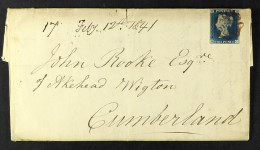 17. Feby. 12th 1841
John Rooke Esqre
of Akehead Wigton
Cumberland